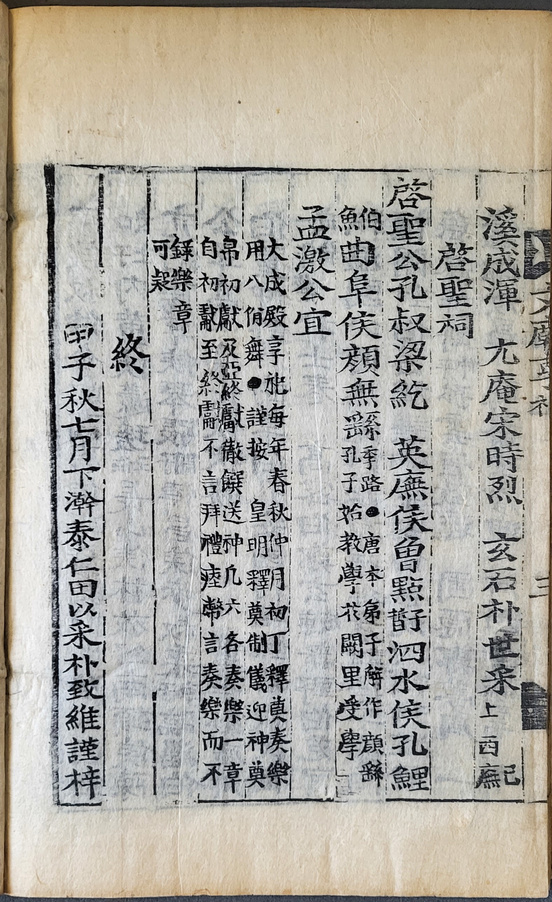 文廟享祀 三
溪成渾 尤庵宋時烈 玄石朴世采 上西廡
啓聖祠
啓聖公孔叔梁紇 英廡侯曾點晳子 泗水侯孔鯉
伯魚 曲阜侯顔無繇 季路●唐本弟子解作顔繇 孔子始教學於闕里受學
孟激公宜
大成殿享祀每年春秋仲月初丁釋奠奏樂
用八佾舞●謹按 皇明釋奠制儀迎神奠
帛初獻及亞終獻徹饌送神凡六各奏樂一章
自初獻至終獻不言拜禮瘞幣言奏樂而不
釋樂章
可疑
終
甲子秋七月下澣泰仁田以采朴致維謹梓